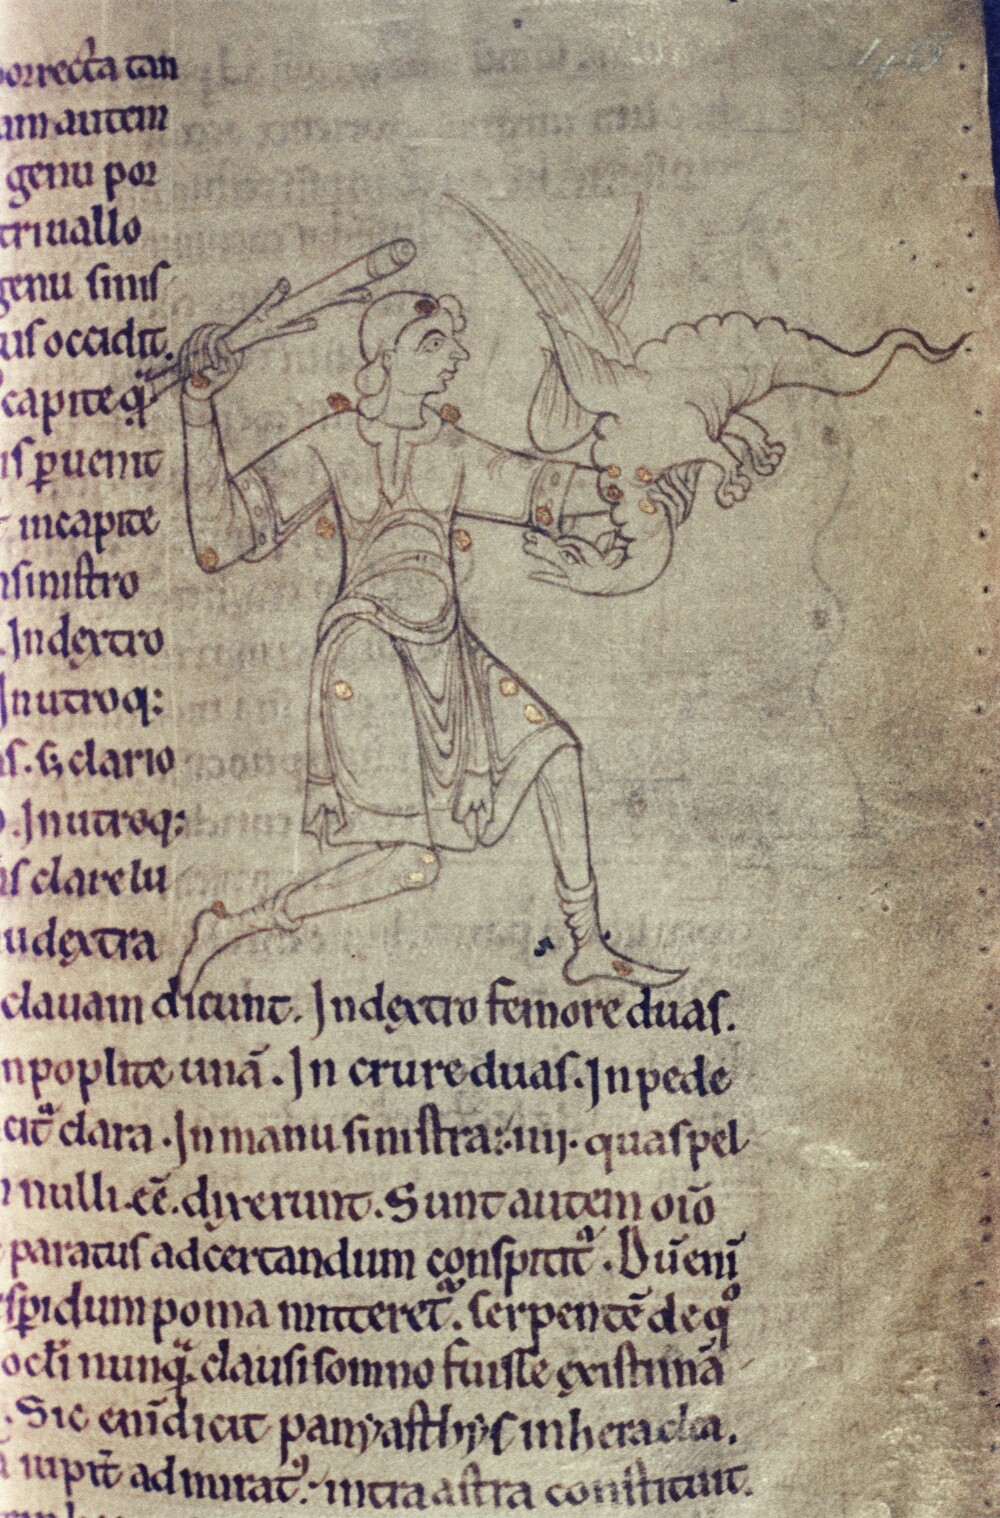 porrecta tan
am autem
genu por
triuallo
genu sinis
us occidit.
capite qͣ
is ꝑuenit
incapite
nsinistro
.In dextro
In utroq:
clario
.In utroq:
is clare lu
dextra
clauam dicunt. In dextro femore duas.
npoplite unā. In crure duas. In pede
clara. In manu sinistra: .iiij. quas pel
nulli. eē. dixerunt. Sunt autem oīo
paratus adcertandum conspicit᷑. Dū enī
poma mitteret᷑. serpentē de qͦ
nunqͣ. clausi somno fuisse existimā
. Sic enī dicit panyasthys in heraclia.
ad mirat᷑. intra astra constituit.